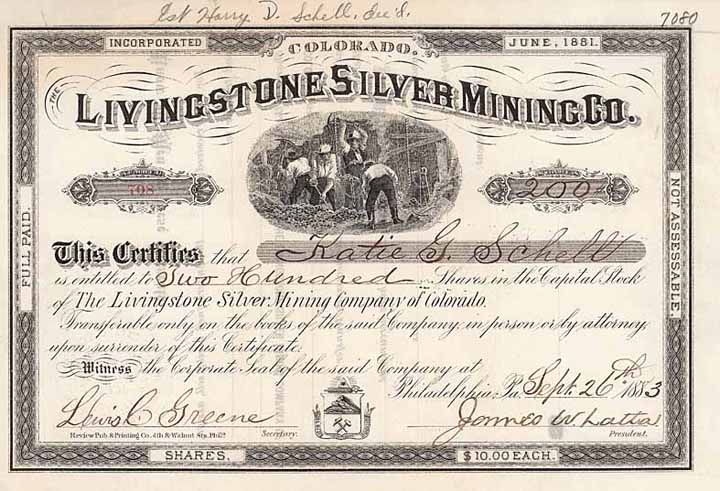 Est Harry D. Schell, Dec'd.
7080
INCORPORATED
COLORADO.
JUNE, 1881.
THE
LIVINGSTONE SILVER MINING CO.
NUMBER
708
SHARES
200
FULL PAID.
NOT ASSESSABLE.
This Certifies that Katie G. Schell
is entitled to Two Hundred Shares in the Capital Stock
of The Livingstone Silver Mining Company of Colorado.
Transferable only on the books of the said Company, in person or by attorney,
upon surrender of this Certificate.
Witness the Corporate Seal of the said Company at
Philadelphia, Pa. Sept. 26th 1883
Lewis C Greene
Review Pub. & Printing Co. 4th & Walnut Sts. Phila.
Secretary.
James W
President.
SHARES,
$10.00 EACH.